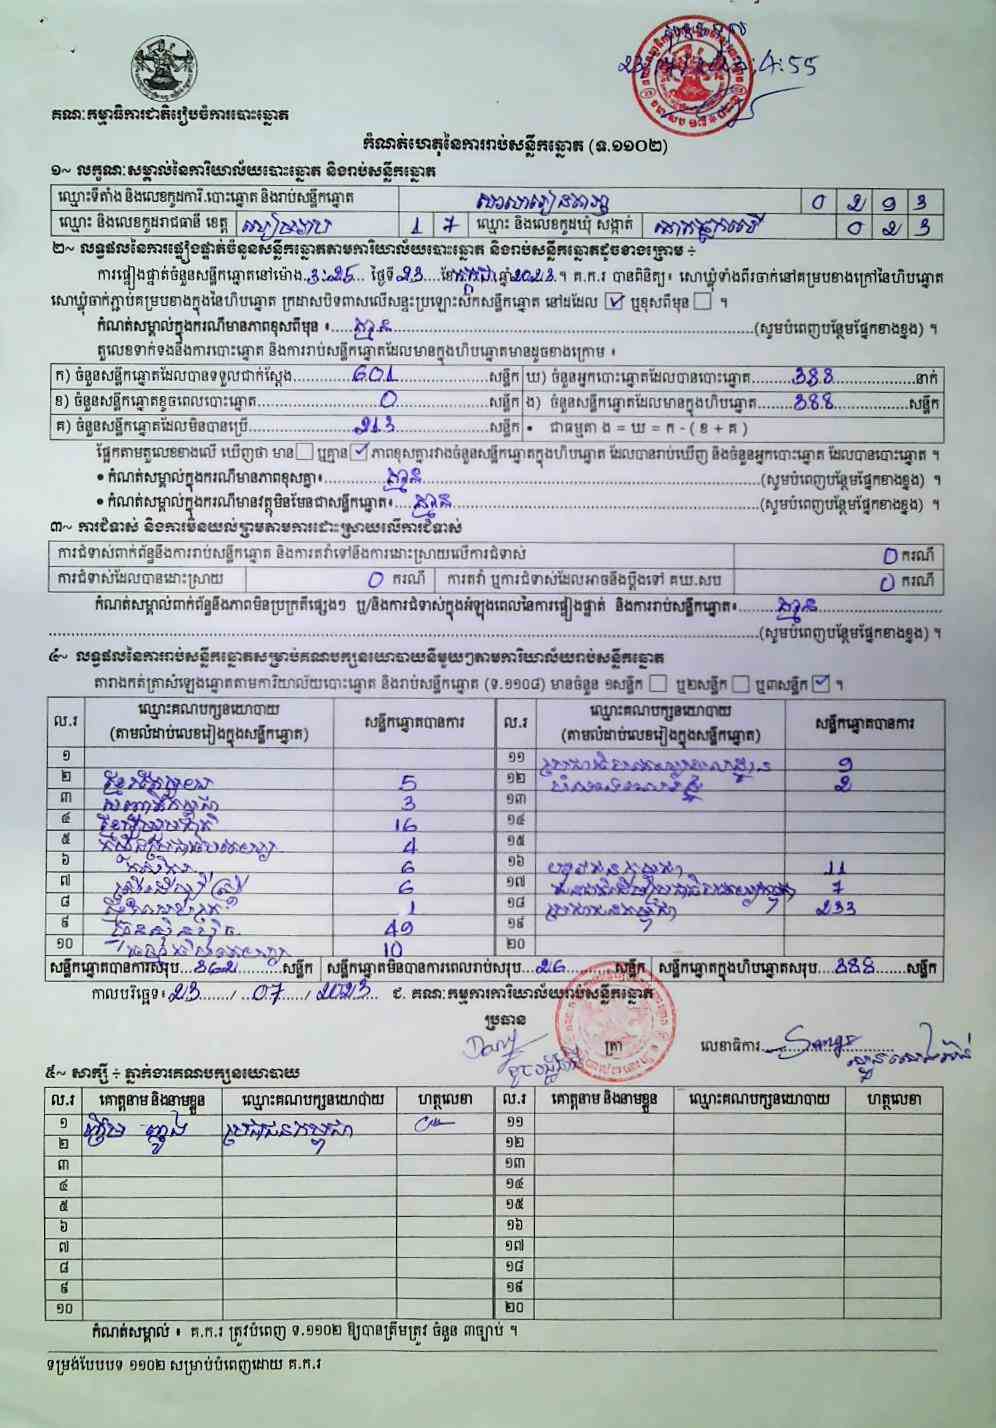 គណៈកម្មាធិការជាតិរៀបចំការបោះឆ្នោត
4:55
កំណត់ហេតុនៃការរាប់សន្លឹកឆ្នោត (ទ.១១០២)
១~ លក្ខណៈសម្គាល់នៃការិយាល័យបោះឆ្នោត និងរាប់សន្លឹកឆ្នោត
ឈ្មោះទីតាំង និងលេខកូដការិ.បោះឆ្នោត និងរាប់សន្លឹកឆ្នោត 0 2 9 3
ឈ្មោះ និងលេខកូដរាជធានី ខេត្ត សៀមរាប 1 7 ឈ្មោះ និងលេខកូដឃុំ សង្កាត់ 0 2 3
២~ លទ្ធផលនៃការផ្ទៀងផ្ទាត់ចំនួនសន្លឹកឆ្នោតតាមការិយាល័យបោះឆ្នោត និងរាប់សន្លឹកឆ្នោតដូចខាងក្រោម ÷
ការផ្ទៀងផ្ទាត់ចំនួនសន្លឹកឆ្នោតនៅម៉ោង 3:25 ថ្ងៃទី 23 ខែ កក្កដា ឆ្នាំ 2023 ។ គ.ក.រ បានពិនិត្យ៖ សោឃ្លុំទាំងពីរចាក់នៅគម្របខាងក្រៅនៃហិបឆ្នោត
សោឃ្លុំចាក់ភ្ជាប់គម្របខាងក្នុងនៃហិបឆ្នោត ក្រដាសបិទពាសលើសន្ទះប្រឡោះស៊កសន្លឹកឆ្នោត នៅដដែល ☑ ឬខុសពីមុន ☐ ។
កំណត់សម្គាល់ក្នុងករណីមានភាពខុសពីមុន ៖ គ្មាន (សូមបំពេញបន្ថែមផ្នែកខាងខ្នង) ។
តួលេខទាក់ទងនឹងការបោះឆ្នោត និងការរាប់សន្លឹកឆ្នោតដែលមានក្នុងហិបឆ្នោតមានដូចខាងក្រោម ៖
ក) ចំនួនសន្លឹកឆ្នោតដែលបានទទួលជាក់ស្តែង 601 សន្លឹក ឃ) ចំនួនអ្នកបោះឆ្នោតដែលបានបោះឆ្នោត 388 នាក់
ខ) ចំនួនសន្លឹកឆ្នោតខូចពេលបោះឆ្នោត 0 សន្លឹក ង) ចំនួនសន្លឹកឆ្នោតដែលមានក្នុងហិបឆ្នោត 388 សន្លឹក
គ) ចំនួនសន្លឹកឆ្នោតដែលមិនបានប្រើ 213 សន្លឹក • ជាធម្មតា ង = ឃ = ក - ( ខ + គ )
ផ្អែកតាមតួលេខខាងលើ ឃើញថា មាន ☐ ឬគ្មាន ☑ ភាពខុសគ្នារវាងចំនួនសន្លឹកឆ្នោតក្នុងហិបឆ្នោត ដែលបានរាប់ឃើញ និងចំនួនអ្នកបោះឆ្នោត ដែលបានបោះឆ្នោត ។
• កំណត់សម្គាល់ក្នុងករណីមានភាពខុសគ្នា៖ គ្មាន (សូមបំពេញបន្ថែមផ្នែកខាងខ្នង) ។
• កំណត់សម្គាល់ក្នុងករណីមានវត្ថុមិនមែនជាសន្លឹកឆ្នោត៖ គ្មាន (សូមបំពេញបន្ថែមផ្នែកខាងខ្នង) ។
៣~ ការជំទាស់ និងការមិនយល់ព្រមតាមការដោះស្រាយលើការជំទាស់
ការជំទាស់ពាក់ព័ន្ធនឹងការរាប់សន្លឹកឆ្នោត និងការតវ៉ាទៅនឹងការដោះស្រាយលើការជំទាស់ 0 ករណី
ការជំទាស់ដែលបានដោះស្រាយ 0 ករណី ការតវ៉ា ឬការជំទាស់ដែលអាចនឹងប្តឹងទៅ គឃ.សប 0 ករណី
កំណត់សម្គាល់ពាក់ព័ន្ធនឹងភាពមិនប្រក្រតីផ្សេងៗ ឬ/និងការជំទាស់ក្នុងអំឡុងពេលនៃការផ្ទៀងផ្ទាត់ និងការរាប់សន្លឹកឆ្នោត៖ គ្មាន
(សូមបំពេញបន្ថែមផ្នែកខាងខ្នង) ។
៤~ លទ្ធផលនៃការរាប់សន្លឹកឆ្នោតសម្រាប់គណបក្សនយោបាយនីមួយៗតាមការិយាល័យរាប់សន្លឹកឆ្នោត
តារាងកត់ត្រាសំឡេងឆ្នោតតាមការិយាល័យបោះឆ្នោត និងរាប់សន្លឹកឆ្នោត (ទ.១១០៨) មានចំនួន ១សន្លឹក ☐ ឬ២សន្លឹក ☐ ឬ៣សន្លឹក ☑ ។
ល.រ ឈ្មោះគណបក្សនយោបាយ (តាមលំដាប់លេខរៀងក្នុងសន្លឹកឆ្នោត) សន្លឹកឆ្នោតបានការ ល.រ ឈ្មោះគណបក្សនយោបាយ (តាមលំដាប់លេខរៀងក្នុងសន្លឹកឆ្នោត) សន្លឹកឆ្នោតបានការ
១ ១១ 9
២ 5 ១២ 2
៣ 3 ១៣
៤ 16 ១៤
៥ 4 ១៥
៦ 6 ១៦ 11
៧ 6 ១៧ 7
៨ 1 ១៨ ប្រជាជនកម្ពុជា 233
៩ 49 ១៩
១០ 10 ២០
សន្លឹកឆ្នោតបានការសរុប 362 សន្លឹក សន្លឹកឆ្នោតមិនបានការពេលរាប់សរុប 26 សន្លឹក សន្លឹកឆ្នោតក្នុងហិបឆ្នោតសរុប 388 សន្លឹក
កាលបរិច្ឆេទ៖ 23 / 07 / 2023 ជ. គណៈកម្មការការិយាល័យរាប់សន្លឹកឆ្នោត
ប្រធាន
ត្រា លេខាធិការ
៥~ សាក្សី ÷ ភ្នាក់ងារគណបក្សនយោបាយ
ល.រ គោត្តនាម និងនាមខ្លួន ឈ្មោះគណបក្សនយោបាយ ហត្ថលេខា ល.រ គោត្តនាម និងនាមខ្លួន ឈ្មោះគណបក្សនយោបាយ ហត្ថលេខា
១ ប្រជាជនកម្ពុជា ១១
២ ១២
៣ ១៣
៤ ១៤
៥ ១៥
៦ ១៦
៧ ១៧
៨ ១៨
៩ ១៩
១០ ២០
កំណត់សម្គាល់ ៖ គ.ក.រ ត្រូវបំពេញ ទ.១១០២ ឱ្យបានត្រឹមត្រូវ ចំនួន ៣ច្បាប់ ។
ទម្រង់បែបបទ ១១០២ សម្រាប់បំពេញដោយ គ.ក.រ